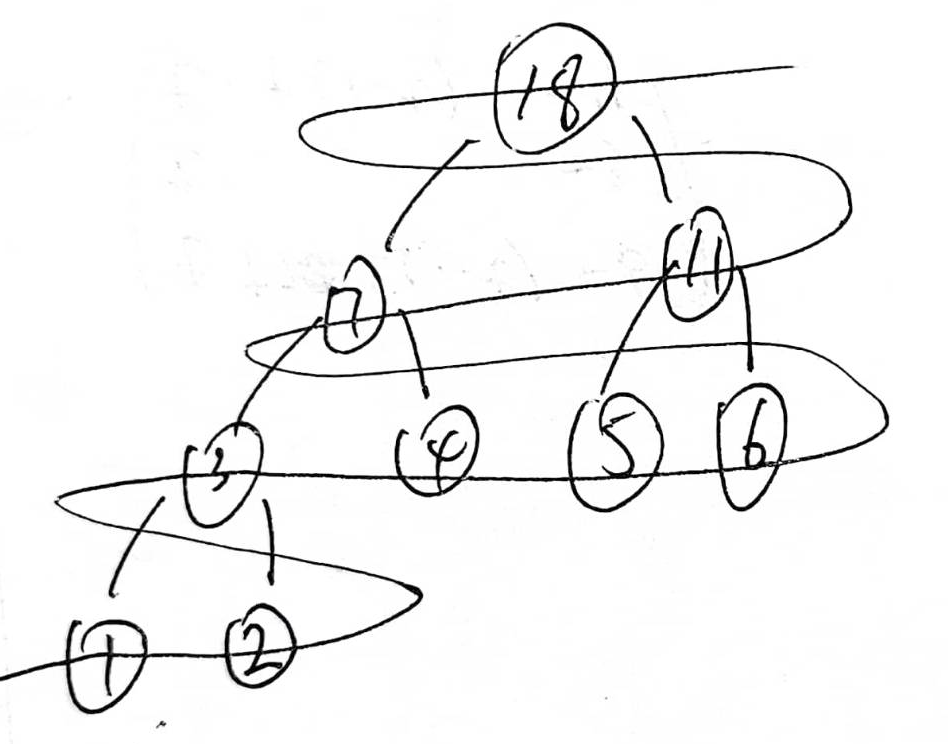 18
7 11
3 4 5 6
1 2